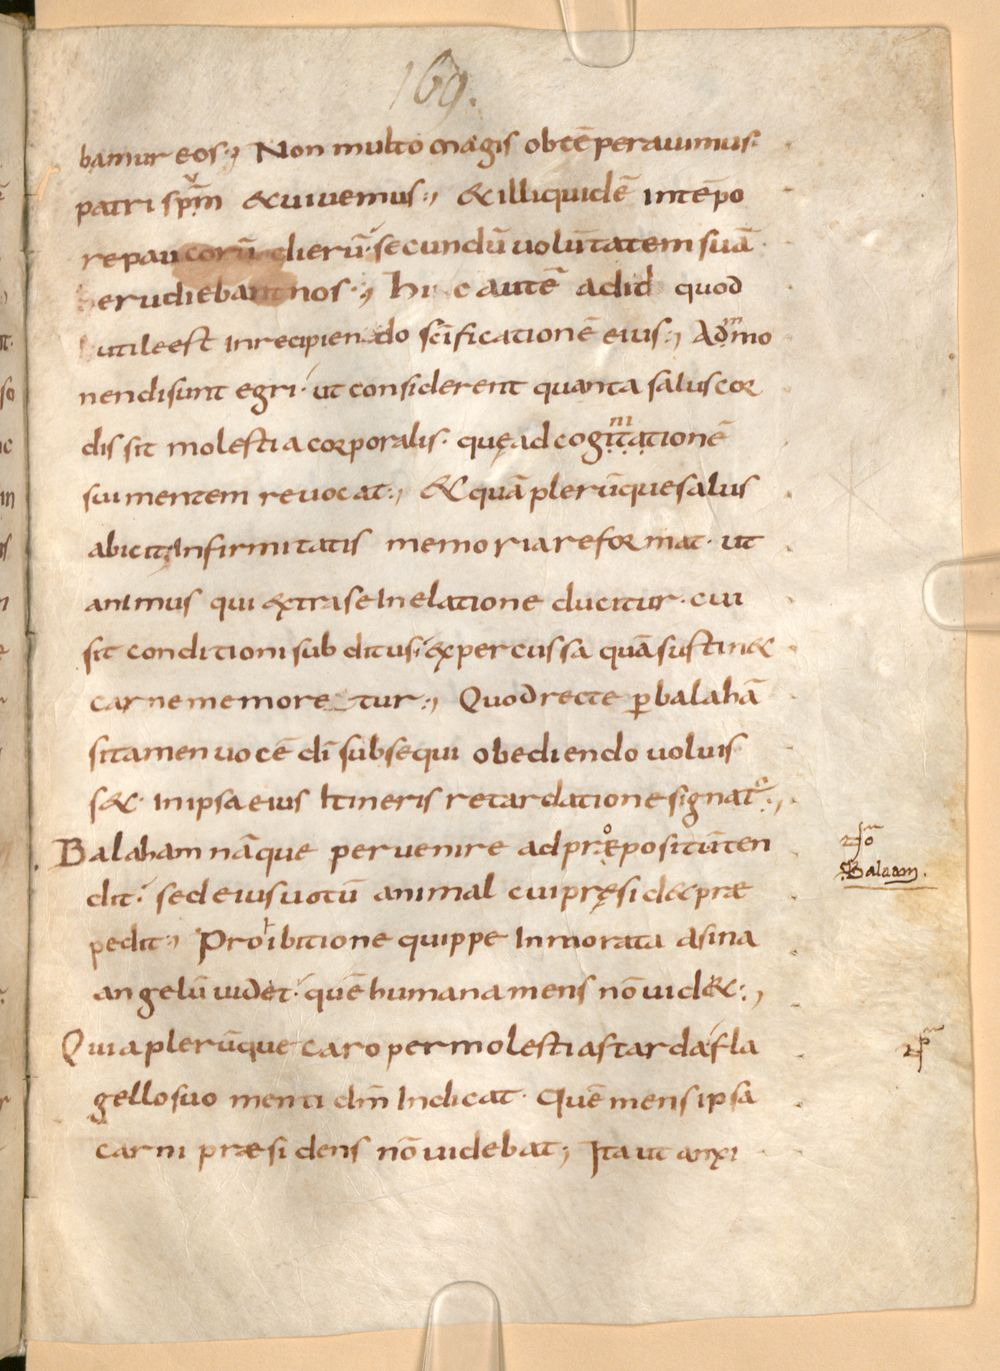 169.
bamur eos:, Non multo magis obtēperauimus:
patri spm̄ &uiuemus:, &illiquidē intēpo
repaucorū dierū· secundū uolūtatem suā
erudiebant nos:, hic autē adid quod
utileest inrecipiendo scīficationē eius:, Adm̄o
nendisunt egri· ut considerent quanta saluscor
dis sit molestiacorporalis· quęad cogitationē
sui mentem reuocat:, &quāplerūquesalus
abicit Infirmitatis memoriareformat· ut
animus qui extraseInelatione ducitur· cui
sit conditioni sub ditus· expercussa quāsustin&
carnememore tur:, Quodrecte p̱balahā
sitamen uocē dī subsequi obediendo uoluis
s&· Inipsa eius Itineris retardationesignat᷒:,
Balaham nāque peruenire adpræpositūten
dit· sedeiusuotū animal cuipręsid&præ
pedit:, Proibitione quippe Inmorata asina
angelū uidet· quē humanamens nō uid&:,
Quiaplerūque caro permolestiastardafla
gellosuo menti dm̄ Indicat· Quē mensipsa
carni præsidens nō uidebat; Ita ut anxi
Balaam.